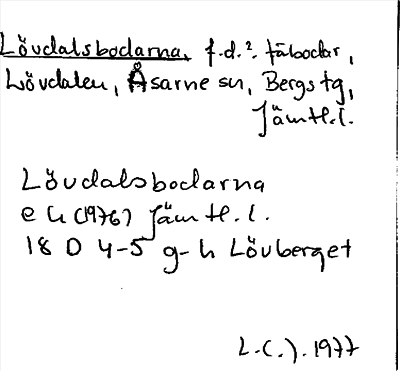 Lövdalsbodarna, f.d.? fäbodar,
Lövdalen, Åsarne sn, Bergs tg,
Jämtl.l.
Lövdalsbodarna
e k (1976) Jämtl.l.
18 D 4-5 g-h Lövberget
L.C.J. 1977